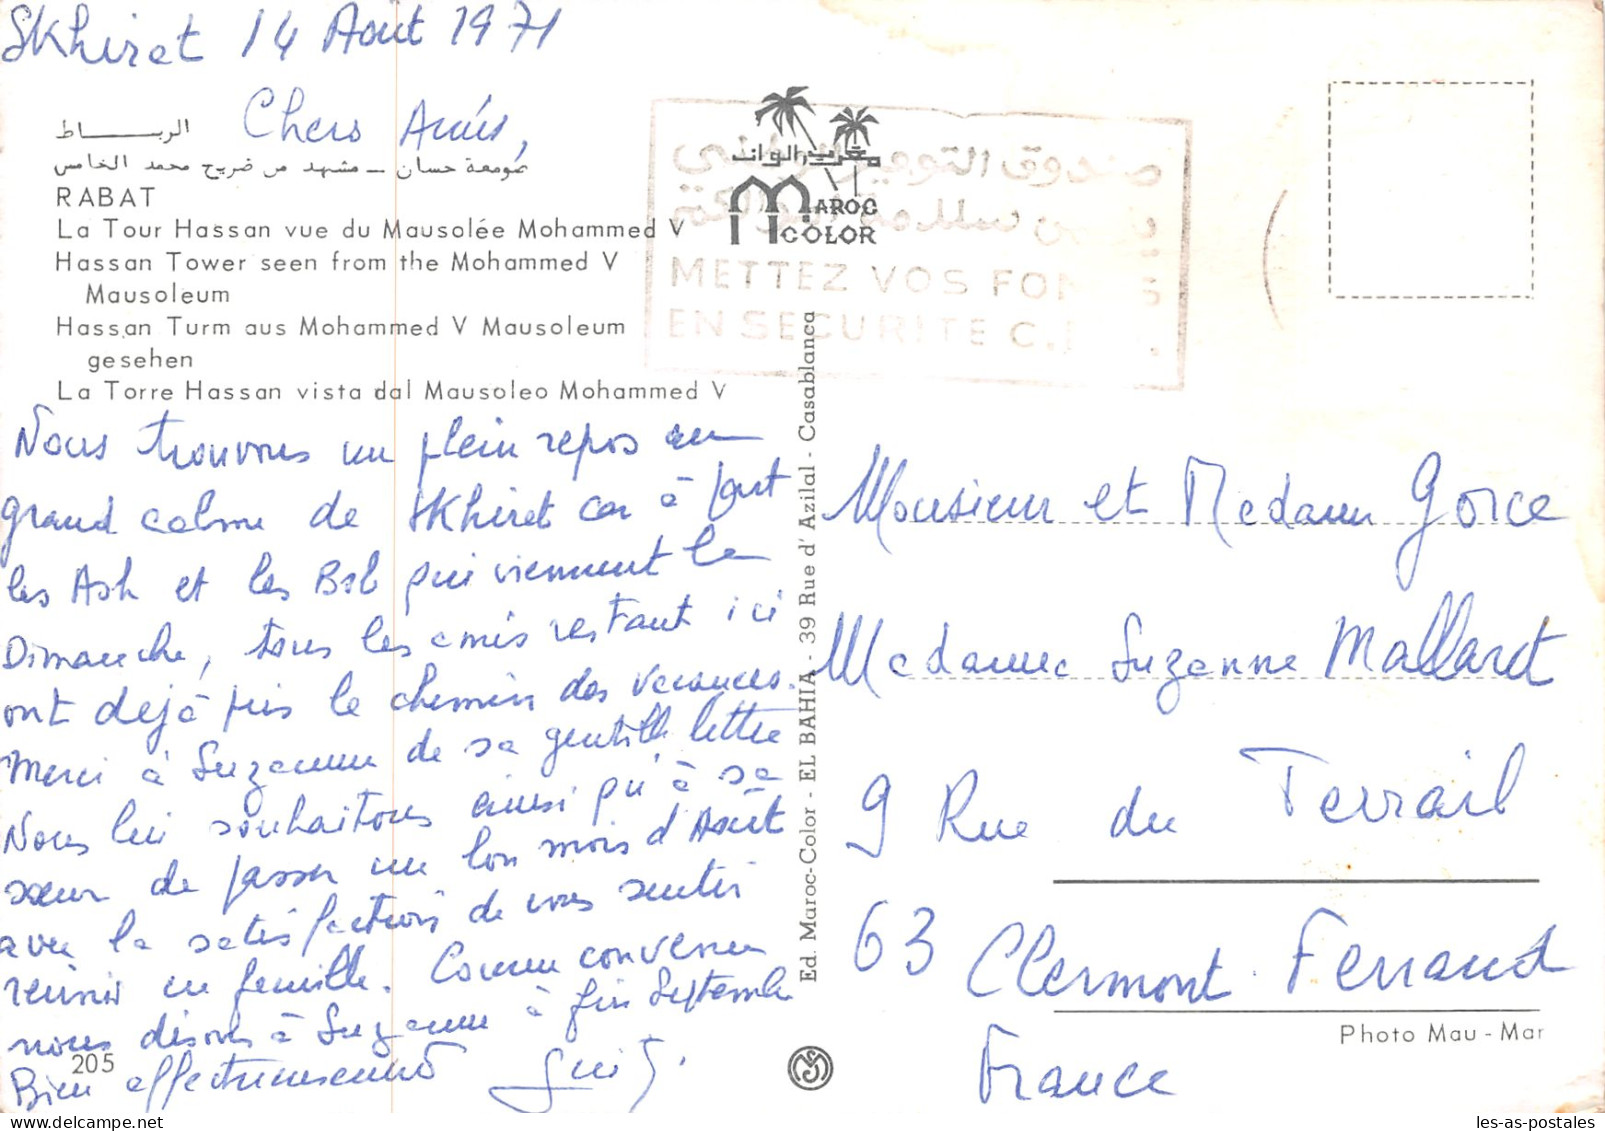 Skhirat 14 Août 1971
Chers Amis,
الربـــاط
صومعة حسان ــ مشهد من ضريح محمد الخامس
RABAT
La Tour Hassan vue du Mausolée Mohammed V
Hassan Tower seen from the Mohammed V
Mausoleum
Hassan Turm aus Mohammed V Mausoleum
gesehen
La Torre Hassan vista dal Mausoleo Mohammed V
Nous trouvons un plein repos au
grand calme de Skhirat car à part
les Ash et les Bsb qui viennent le
Dimanche, tous les amis restant ici
ont dejà pris le chemin des vacances.
Merci à Suzanne de sa gentille lettre
Nous lui souhaitons ainsi qu'à sa
sœur de passer un bon mois d'Août
avec la satisfaction de vous sentir
réunis en famille. Comme convenu
nous disons à Suzanne à fin Septembre
Bien affectueusement
205
MAROC
COLOR
صندوق التوفير الوطني
METTEZ VOS FON S
EN SECURITE C.
Ed. Maroc-Color - EL BAHIA - 39 Rue d'Azilal - Casablanca
Monsieur et Madame Gorce
Madame Suzanne Mallaret
9 Rue du Terrail
63 Clermont Ferrand
France
Photo Mau-Mar
les-as-postales